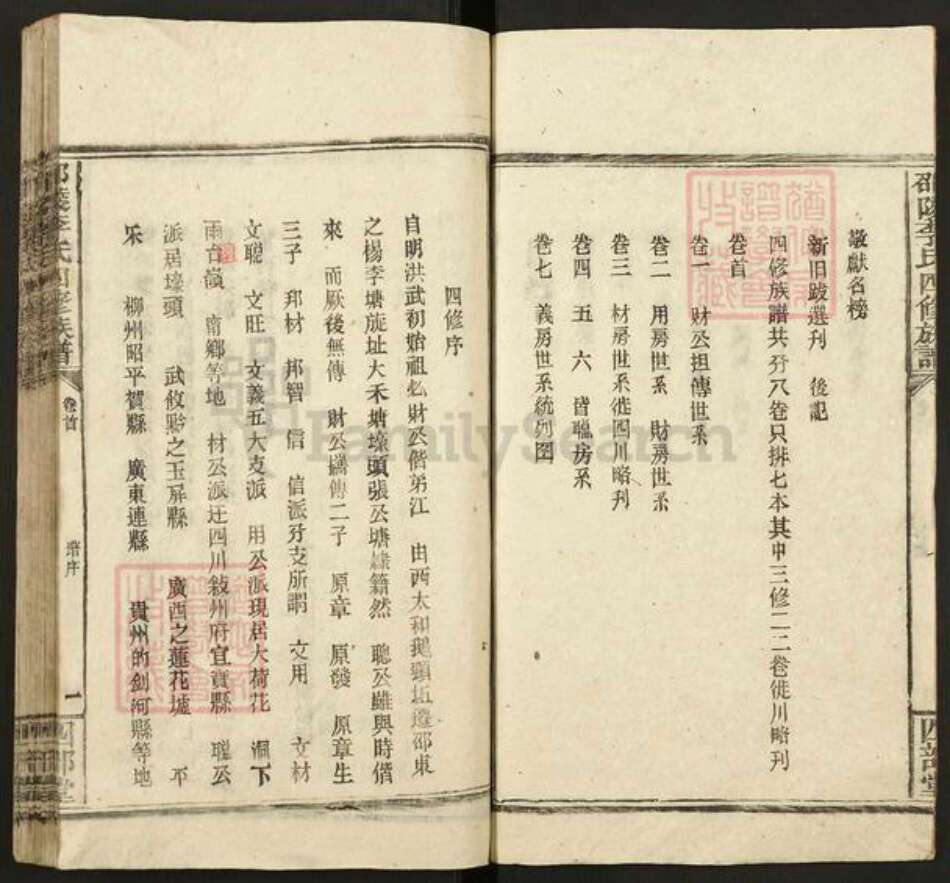 邵陵李氏四修族譜
敬獻名榜
新旧跋選刊 後記
四修族譜共分八卷只排七本其中三修一二卷徙川略刊
卷首
卷一 財公担傳世系
卷二 用房世系 財房世系
卷三 材房世系徙四川略刊
卷四 五 六 皆聰房系
卷七 義房世系統列图
四部堂
四修序
自明洪武初始祖必財公偕弟江 由西太和鵝頸坵遷邵東
之楊李塘旋址大禾塘壕頭張公塘隷籍然 聰公雖與時偕
來 而厥後無傳 財公擕傳二子 原章 原發 原章生
三子 邦材 邦智 信 信派分支所謂 文用 文材
文聪 文旺 文義五大支派 用公派現居大荷花 洞下
雨台嶺 南鄉等地 材公派迁四川敍州府宜賓縣 聪公
派居壕頭 武攸黔之玉屏縣 廣西之蓮花墟 平
乐 柳州昭平賀縣 廣東連縣 貴州的劍河縣等地
邵陵李氏四修族譜
卷首
譜序
一
四部堂
FamilySearch